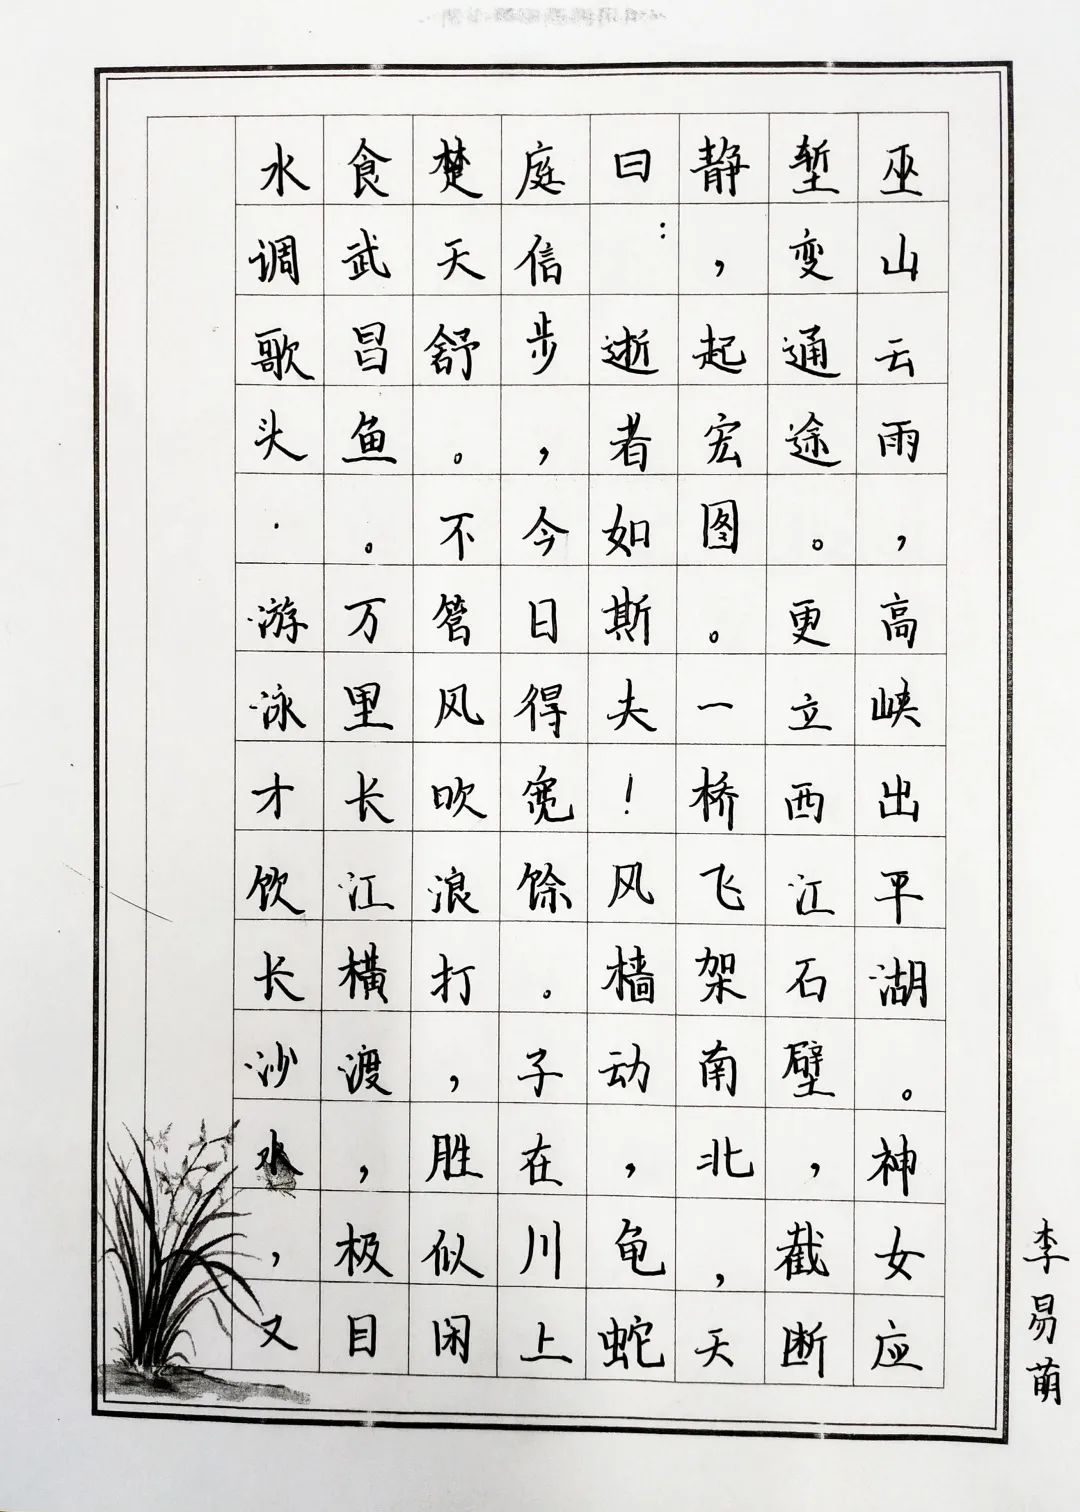 水调歌头·游泳才饮长沙水，又
食武昌鱼。万里长江横渡，极目
楚天舒。不管风吹浪打，胜似闲
庭信步，今日得宽馀。子在川上
曰：逝者如斯夫！风樯动，龟蛇
静，起宏图。一桥飞架南北，天
堑变通途。更立西江石壁，截断
巫山云雨，高峡出平湖。神女应
李易萌